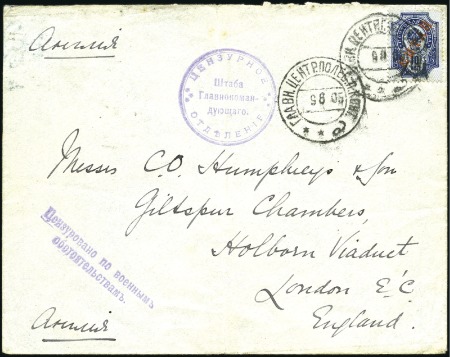 Англия
ЦЕНЗУРНОЕ
Штаба
Главнокоман-
дующаго.
ОТДѢЛЕНІЕ
ГЛАВН. ЦЕНТР. ПОЛЕВ.
9 8 05
Messrs C.O. Humphreys & Son
Giltspur Chambers,
Holborn Viaduct
London E.C.
England.
Цензуровано по военнымъ
обстоятельствамъ.
Англія